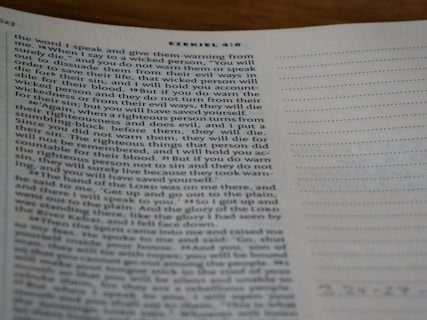 523
EZEKIEL 4:6
the word I speak and give them warning from
me. 18 When I say to a wicked person, "You will
surely die," and you do not warn them or speak
out to dissuade them from their evil ways in
order to save their life, that wicked person will
die for their sin, and I will hold you account-
able for their blood. 19 But if you do warn the
wicked person and they do not turn from their
wickedness or from their evil ways, they will die
for their sin; but you will have saved yourself.
20 "Again, when a righteous person turns from
their righteousness and does evil, and I put a
stumbling block before them, they will die.
Since you did not warn them, they will die for
their sin. The righteous things that person did
will not be remembered, and I will hold you ac-
countable for their blood. 21 But if you do warn
the righteous person not to sin and they do not
sin, they will surely live because they took warn-
ing, and you will have saved yourself."
22 The hand of the LORD was on me there, and
he said to me, "Get up and go out to the plain,
and there I will speak to you." 23 So I got up and
went out to the plain. And the glory of the LORD
was standing there, like the glory I had seen by
the Kebar River, and I fell face down.
24 Then the Spirit came into me and raised me
to my feet. He spoke to me and said: "Go, shut
yourself inside your house. 25 And you, son of
man, they will tie with ropes; you will be bound
so that you cannot go out among the people. 26 I
will make your tongue stick to the roof of your
mouth so that you will be silent and unable
3:24-27